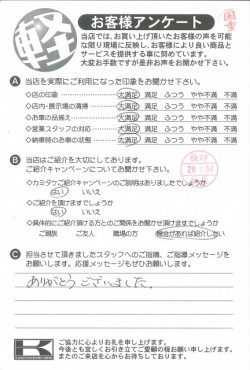 軽
お客様アンケート
当店では、お買い上げ頂いたお客様の声を可能
な限り現場に反映し、お客様により良い商品と
サービスを提供する事に努めています。
大変お手数ですが是非お声をお聞かせ下さい。
A 当店を実際にご利用になった印象をお聞かせ下さい。
◇店の印象 大満足 満足 ふつう やや不満 不満
◇店内・展示場の清掃 大満足 満足 ふつう やや不満 不満
◇お車の品揃え 大満足 満足 ふつう やや不満 不満
◇営業スタッフの対応 大満足 満足 ふつう やや不満 不満
◇納車時のお車の状態 大満足 満足 ふつう やや不満 不満
B 当店はご紹介を大切にしております。
ご紹介キャンペーンについてお聞かせ下さい。
検印
◇カミタケご紹介キャンペーンのご説明はありましたでしょうか
はい いいえ
◇ご紹介を頂けますでしょうか
はい いいえ
◇具体的にご紹介頂ける方とのご関係をお聞かせ頂けますでしょうか
ご親族 ご友人 職場の方 機会があれば紹介したい
C 担当させて頂きましたスタッフへのご指摘、ご指導メッセージを
お願いします。応援メッセージもぜひお願いします。
ありがとうございました。
K
ご協力に心よりお礼を申し上げます。
今後とも宜しくお引き立てご愛顧の程お願い申し上げます。
またのご来店を心からお待ちしております。